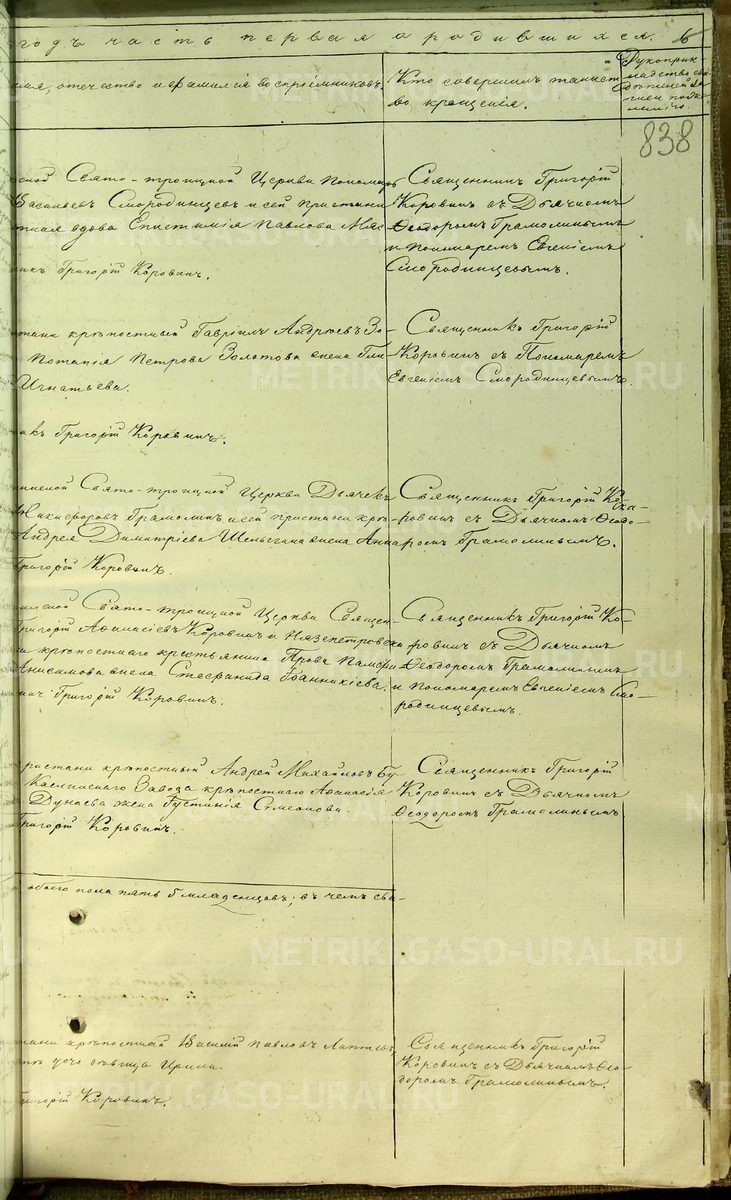 годъ часть первая о родившихся. 6
имя, отчество и фамилія воспріемниковъ.
Кто совершилъ таинст
во крещенія.
Рукоприк
838
ской Свято-троицкой Церкви Пономарь
Васильевъ Смородинцевъ и сей пристани
вдова Епистимія Павлова
никъ Григорій Коровинъ.
Священникъ Григорій
Коровинъ съ Дьячкомъ
Ѳеодоромъ Грамолинымъ
и пономаремъ Евгеніемъ
Смородинцевымъ.
стани крѣпостный Гавріилъ Андреевъ Зо-
Потапія Петрова Золотова жена Гли
Игнатьева.
никъ Григорій Коровинъ.
Священникъ Григорій
Коровинъ съ Пономаремъ
Евгеніемъ Смородинцевымъ.
Свято-троицкой Церкви Дьячекъ
Никифоровъ Грамолинъ и сей пристани крѣ-
Андрея Димитріева жена Анна
Григорій Коровинъ.
Священникъ Григорій Ко-
ровинъ съ Дьячкомъ Ѳеодо-
ромъ Грамолинымъ.
Свято-троицкой Церкви Священ-
Григорій Аѳанасіевъ Коровинъ и Нязепетровска
крѣпостнаго крестьянина Прова
Анисимова жена Стефанида Іоанникіева.
никъ Григорій Коровинъ.
Священникъ Григорій Ко-
ровинъ съ Дьячкомъ
Ѳеодоромъ Грамолинымъ
и пономаремъ Евгеніемъ Смо-
родинцевымъ.
пристани крѣпостный Андрей Михайловъ Бу-
Каслинскаго Завода крѣпостнаго Аѳанасія
Дунаева жена Густинія Симеонова.
Григорій Коровинъ.
Священникъ Григорій
Коровинъ съ Дьячкомъ
Ѳеодоромъ Грамолинымъ
обоего пола пять 5 младенцовъ; въ чемъ сви-
стани крѣпостной Василій Павловъ Лаптевъ
дочь дѣвица Ирина.
Григорій Коровинъ.
Священникъ Григорій
Коровинъ съ Дьячкомъ Ѳео-
доромъ Грамолинымъ.
METRIKI.GASO-URAL.RU